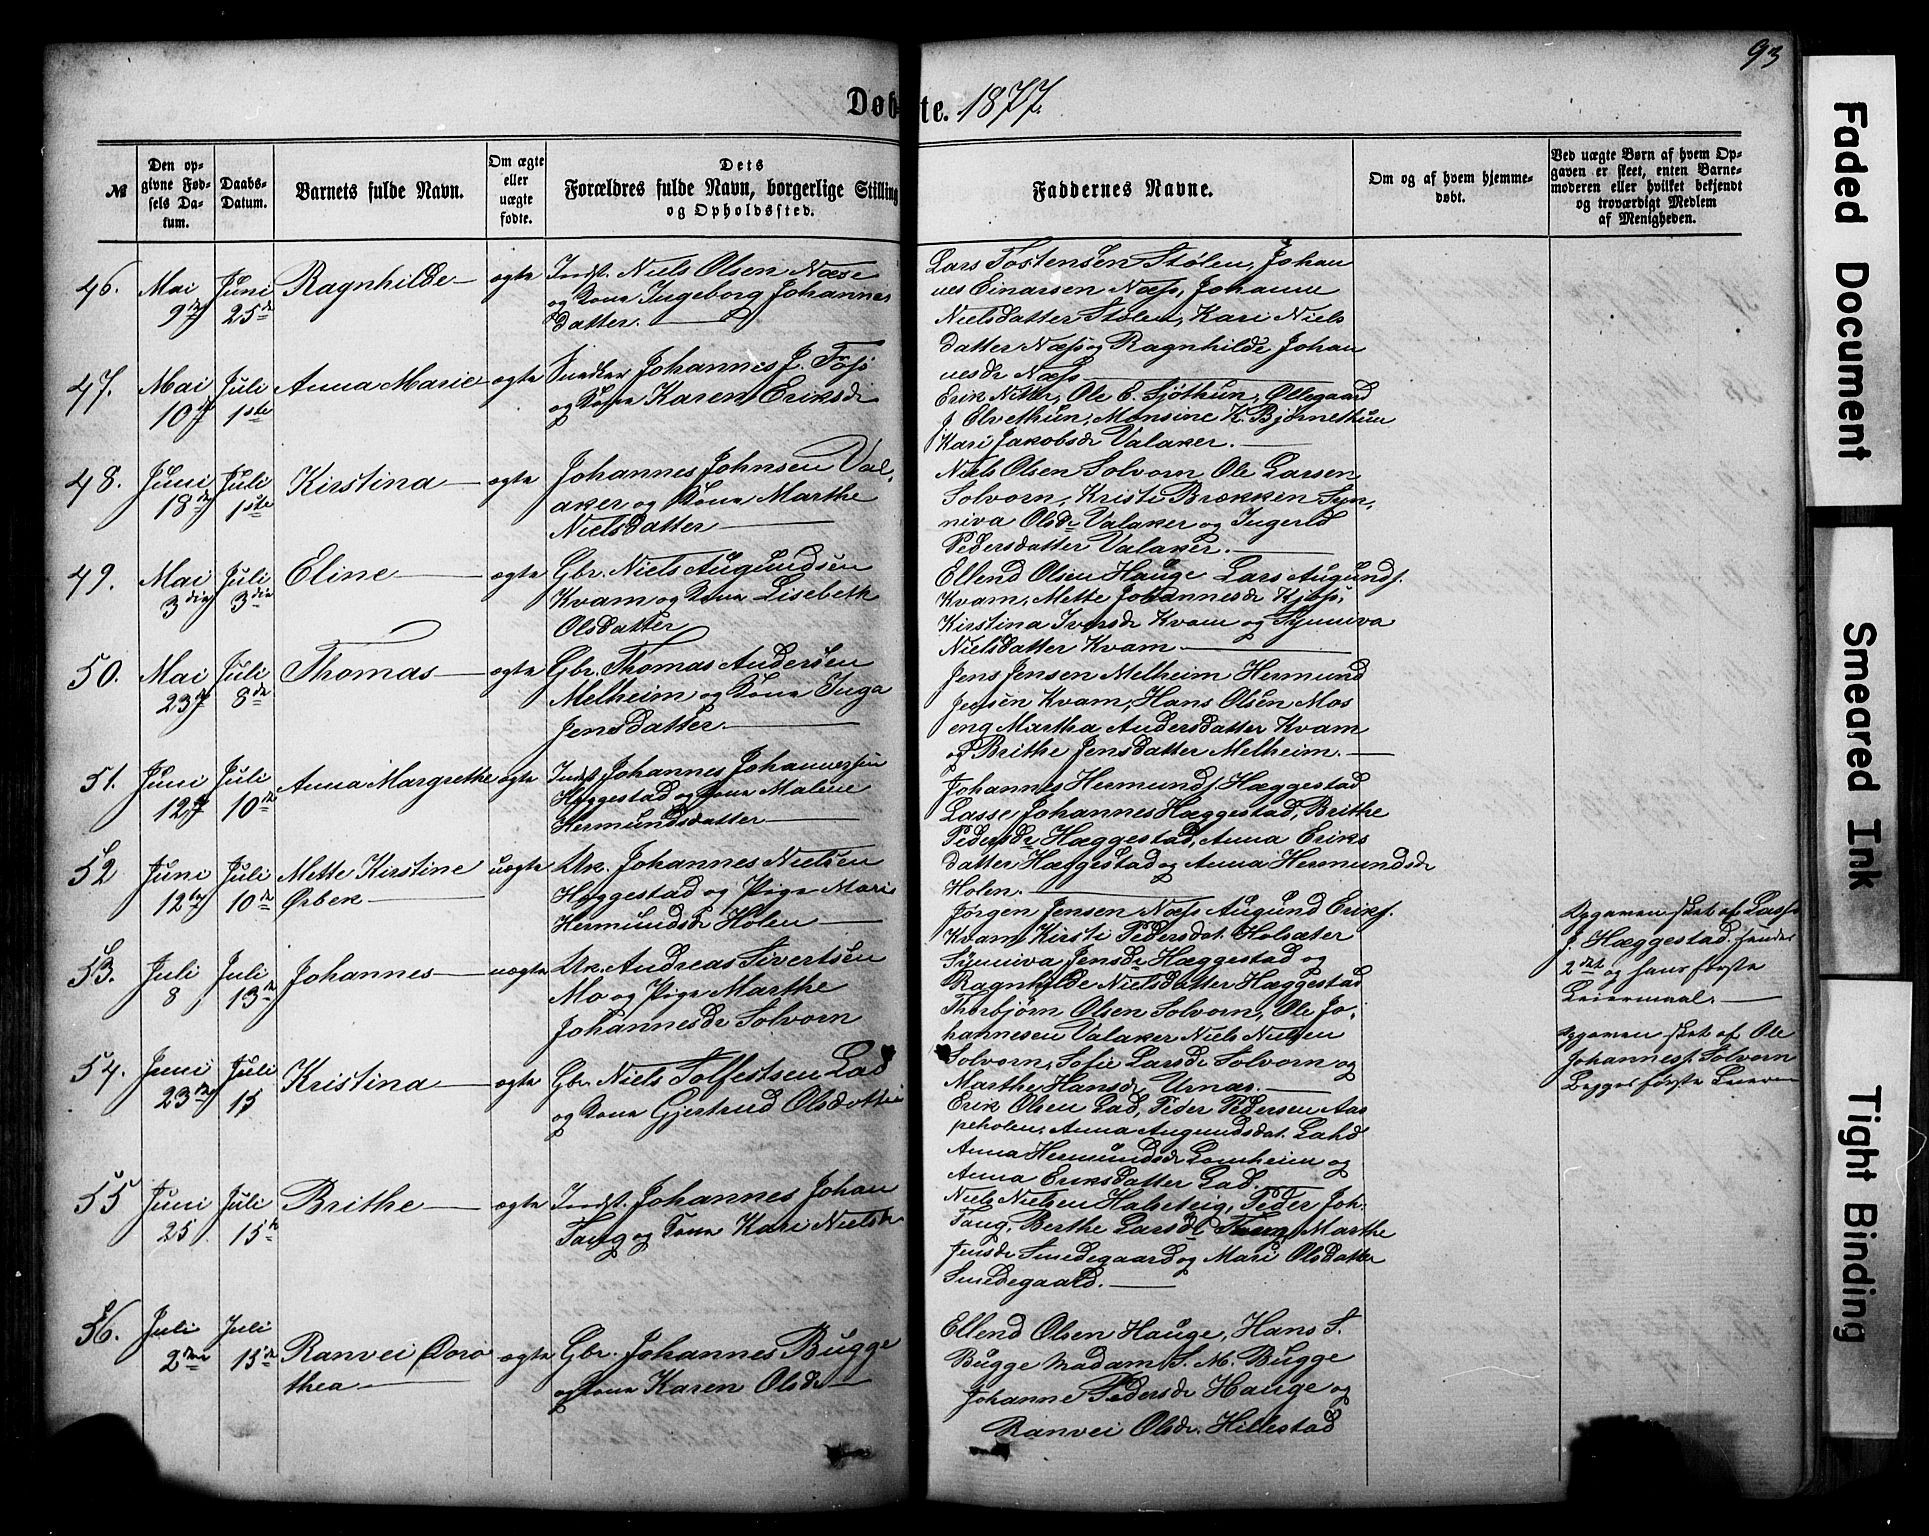 93
Døbte. 1877.
№
Den op-
givne Fød-
sels Da-
tum.
Daabs-
Datum.
Barnets fulde Navn.
Om ægte
eller
uægte
fødte.
Dets
Forældres fulde Navn, borgerlige Stilling
og Opholdssted.
Faddernes Navne.
Om og af hvem hjemme-
døbt.
Ved uægte Børn af hvem Op-
gaven er skeet, enten Barne-
moderen eller hvilket bekjendt
og troværdigt Medlem
af Menigheden.
46. Mai 9de Juni 25de Ragnhilde ægte
Indst. Niels Olsen Næse
og Kone Ingeborg Johannes
datter.
Lars Tostensen Stølen, Johan
nes Einarsen Næss, Johanne
Nielsdatter Stølen, Kari Niels
datter Næss og Ragnhilde Johan
nesdr Næss
47. Mai 10de Juli 1ste Anna Marie ægte
Snedker Johannes J.
og Kone Karen Eriksdr
Erik Nitter, Ole E. Sjøthun, Ollegaard
J. Elvethun, Monsine K. Bjørnethun
Kari Jakobsdr Valaker.
48. Juni 18de Juli 1ste Kirstina ægte
Johannes Johnsen Val-
aker og Kone Marthe
Nielsdatter
Niels Olsen Solvorn, Ole Larsen
Solvorn, Kristi Brækken, Syn-
niva Olsdr Valaker og Ingerld
Pedersdatter Valaker.
49. Mai 3die Juli 3die Eline ægte
Gbr. Niels Augundsen
Kvam og Kone Lisebeth
Olsdatter
Ellend Olsen Hauge Lars Augunds.
Kvam, Mette Johannesdr Kjøss,
Kirstina Iversdr Kvam og Synniva
Nielsdatter Kvam.
50. Mai 23de Juli 8de Thomas ægte
Gbr. Thomas Andersen
Melheim og Kone Inga
Jensdatter.
Jens Jensen Melheim Hermund
Jensen Kvam, Hans Olsen Mos
eng Martha Andersdatter Kvam
og Brithe Jensdatter Melheim.
51. Juni 12te Juli 10de Anna Margrethe ægte
Indst. Johannes Johannessen
Heggestad og Kone Malene
Hermundsdatter
Johannes Hermunds. Hæggestad
Lasse Johannes Hæggestad, Brithe
Pedersdr Hæggestad, Anna Eriks
datter Hæggestad og Anna Hermundsdr
Holen.
52 Juni 12te Juli 10de Mette Kirstine
Ørbek uægte
Uk. Johannes Nielsen
Heggestad og Pige Mari
Hermundsdr Holen
Jørgen Jensen Næss Augund Eriks.
Kvam Kirsti Pedersdat. Holsæter
Synniva Jensdr Hæggestad og
Ragnhilde Nielsdatter Hæggestad
Opgaven skeet af Lasse
J. Hæggestad. hendes
2det og hans første
Leiermaal.
53. Juli 8 Juli 13de Johannes uægte
Uk. Andreas Sivertsen
Mo og Pige Marthe
Johannesdr Solvorn
Thorbjørn Olsen Solvorn, Ole Jo-
hannesen Valaker Niels Nielsen
Solvorn, Sofie Larsdr Solvorn og
Marthe Hansdr Urnæs.
Opgaven skeet af Ole
Johanness. Solvorn
Begges første Leierm
54. Juni 23de Juli 15 Kristina ægte
Gbr. Niels Tolfestsen Lad
og Kone Gjertrud Olsdatter
Erik Olsen Lad, Peder Pedersen Aas
peholen, Anna Augundsdat. Lahd
Anna Hermundsdr Lomheim og
Anna Eriksdatter Lad.
55 Juni 25 Juli 15de Brithe ægte
Indst. Johannes Johan
Taug og Kone Kari Nielsdr
Niels Nielsen Halsteig, Peder Joh.
Taug, Berthe Larsdr Taug Marthe
Jensdr Smedegaard og Mari Olsdatter
Smedegaard.
56. Juli 2den Juli 15de Ranvei Doro
thea ægte
Gbr. Johannes Bugge
og Kone Karen Olsdr
Ellend Olsen Hauge, Hans S.
Bugge Madam S. M. Bugge
Johanne Pedersdr Hauge og
Ranvei Olsdr. Hillestad
Faded Document
Smeared Ink
Tight Binding